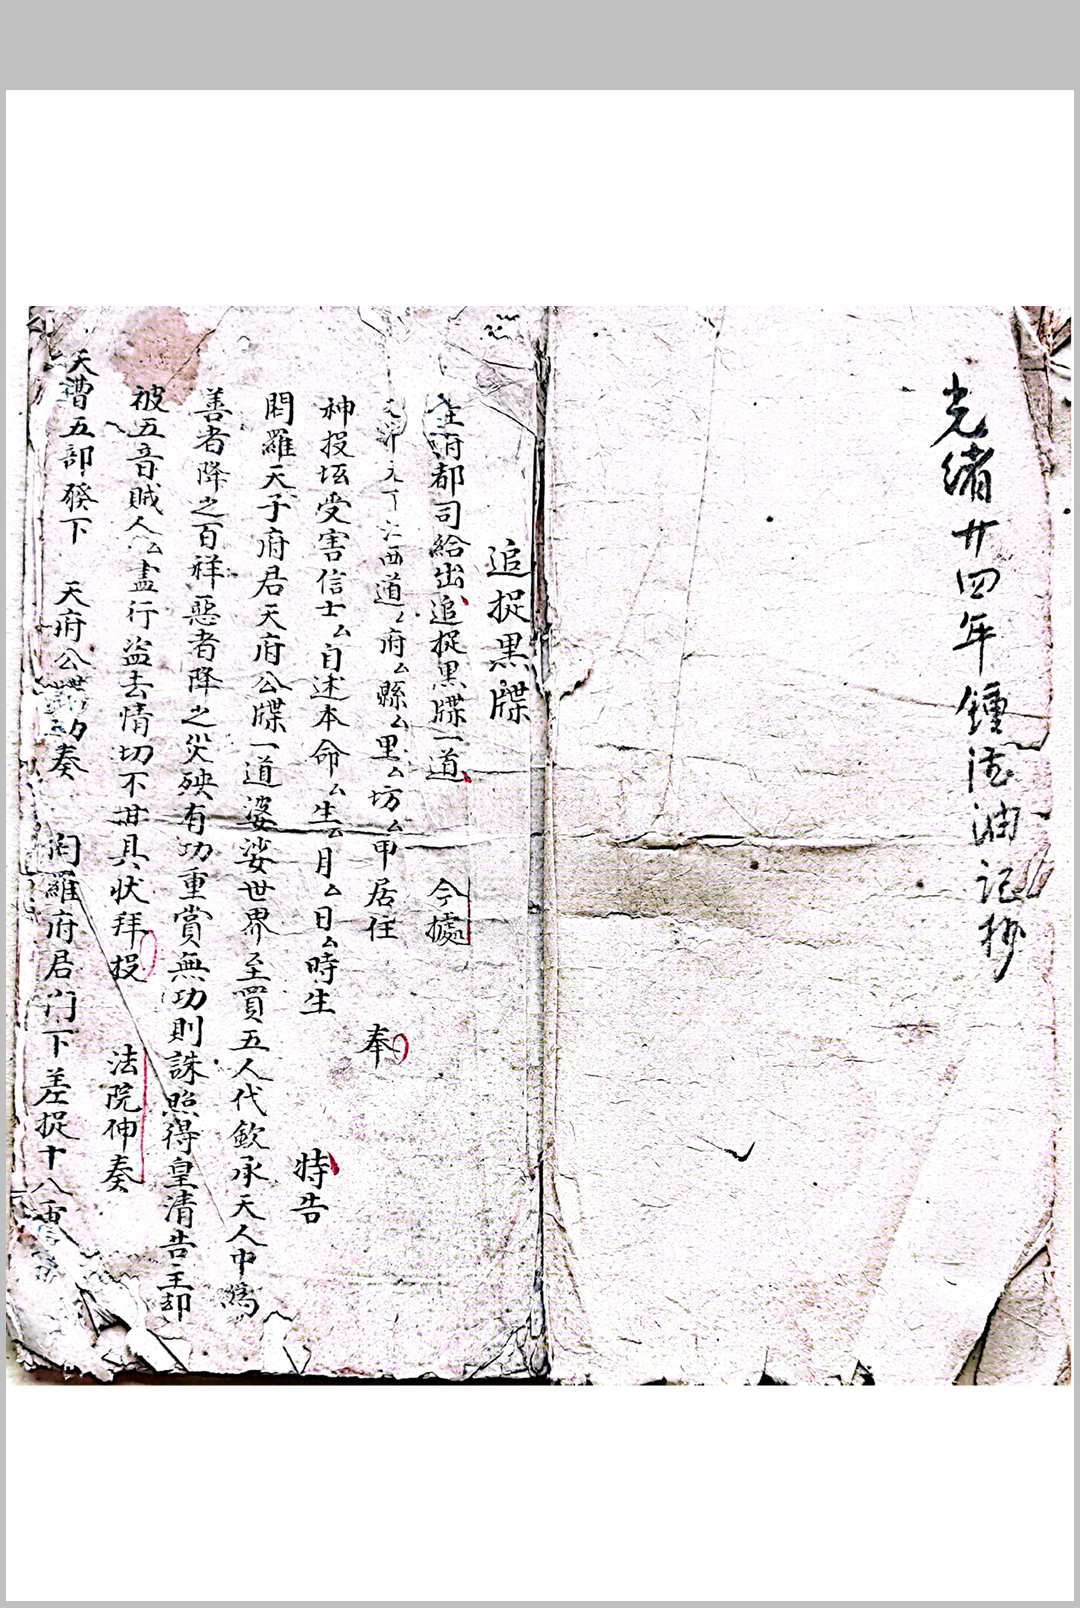 光緒廿四年鍾法油記抄
追捉黑牒
府都司給出追捉黑牒一道 今據
江西道ム府ム縣ム里ム坊ム甲居住 奉
神投坛受害信士ム自述本命ム生ム月ム日ム時生 特告
閗羅天子府君天府公牒一道婆娑世界至買五人代欽承天人中為
善者降之百祥惡者降之災殃有功重賞無功則誅照得皇清告主却
被五音賊人ム盡行盜去情切不甘具状拜投 法院伸奏
天曹五部發下 天府公 劾奏 閗羅府君门下差捉十八